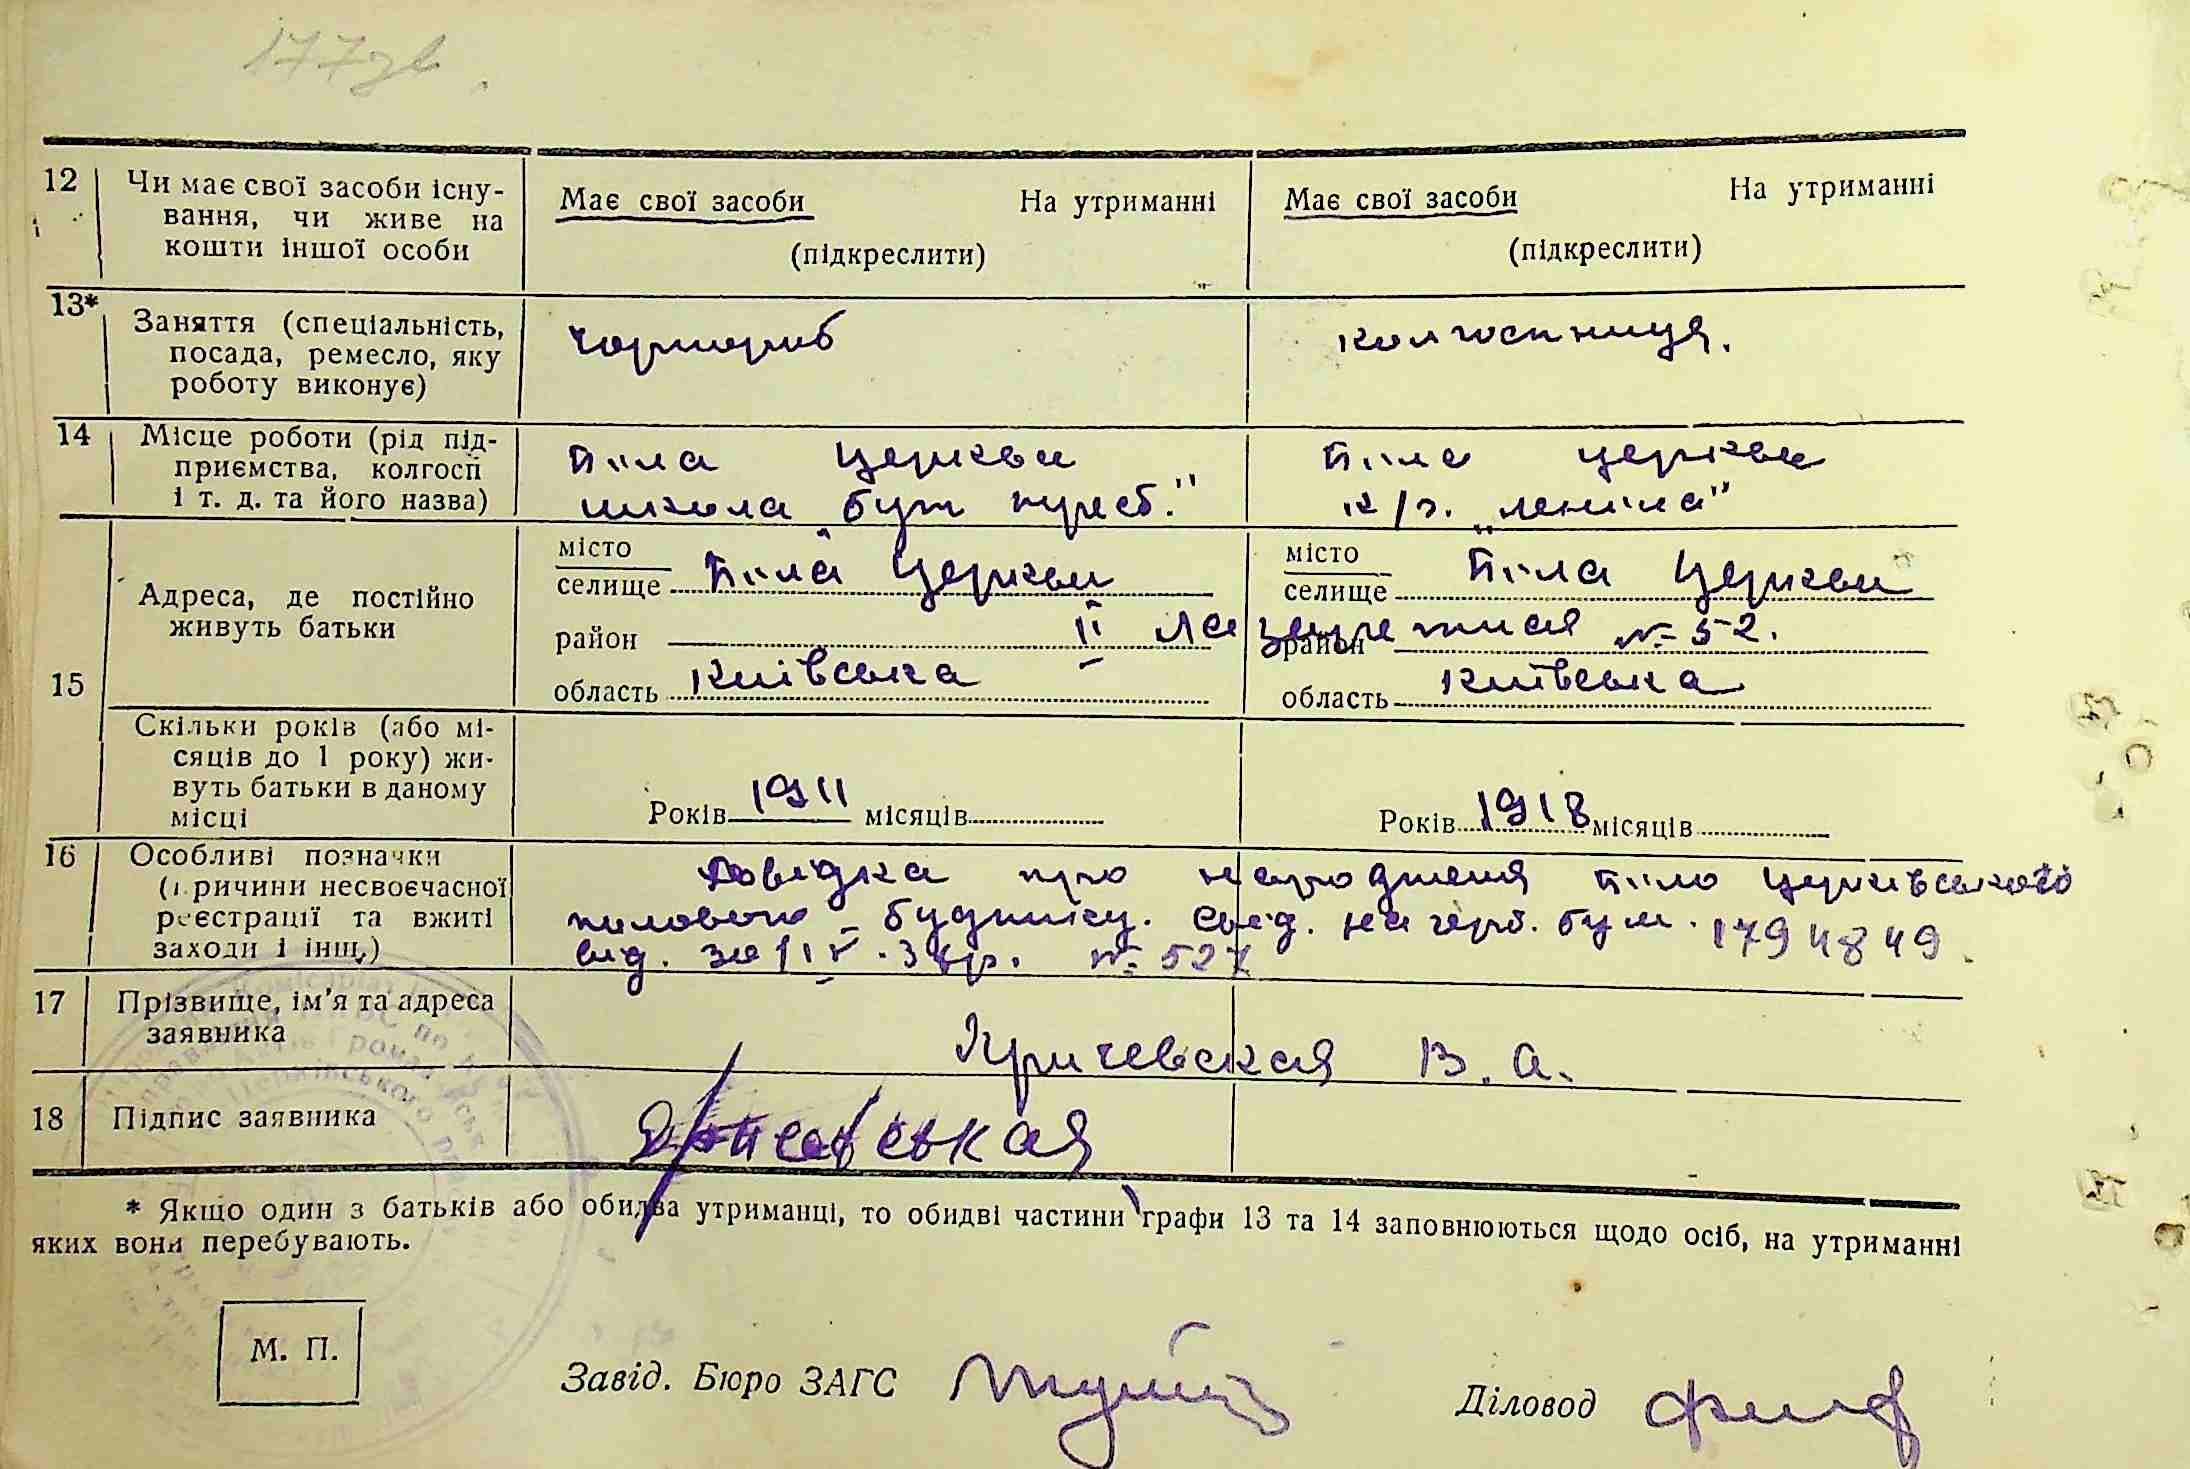 177зв.
12 Чи має свої засоби існу-
вання, чи живе на
кошти іншої особи
Має свої засоби На утриманні
(підкреслити)
Має свої засоби На утриманні
(підкреслити)
13* Заняття (спеціальність,
посада, ремесло, яку
роботу виконує)
Чорнороб
колгоспниця.
14 Місце роботи (рід під-
приємства, колгосп
і т. д. та його назва)
Біла Церква
школа
Біла Церква
к/г. „Леніна"
15 Адреса, де постійно
живуть батьки
місто
селище Біла Церква
район II
область Київська
місто
селище Біла Церква
район № 52.
область Київська
Скільки років (або мі-
сяців до 1 року) жи-
вуть батьки в даному
місці
Років 1911 місяців
Років 1918 місяців
16 Особливі позначки
(причини несвоєчасної
реєстрації та вжиті
заходи і інш.)
Довідка про народження Біло Церківського
пологового будинку. Свід. на герб. бум. 1794849.
від. за № 527
17 Прізвище, ім'я та адреса
заявника
Кричевская В. А.
18 Підпис заявника
* Якщо один з батьків або обидва утриманці, то обидві частини графи 13 та 14 заповнюються щодо осіб, на утриманні
яких вони перебувають.
М. П.
Завід. Бюро ЗАГС
Діловод